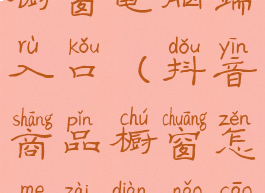 橱窗电脑端
rù kǒu dǒu yīn
入口（抖音
shāng pǐn chú chuāng zěn
商品橱窗怎
me zài diàn nǎo cāo